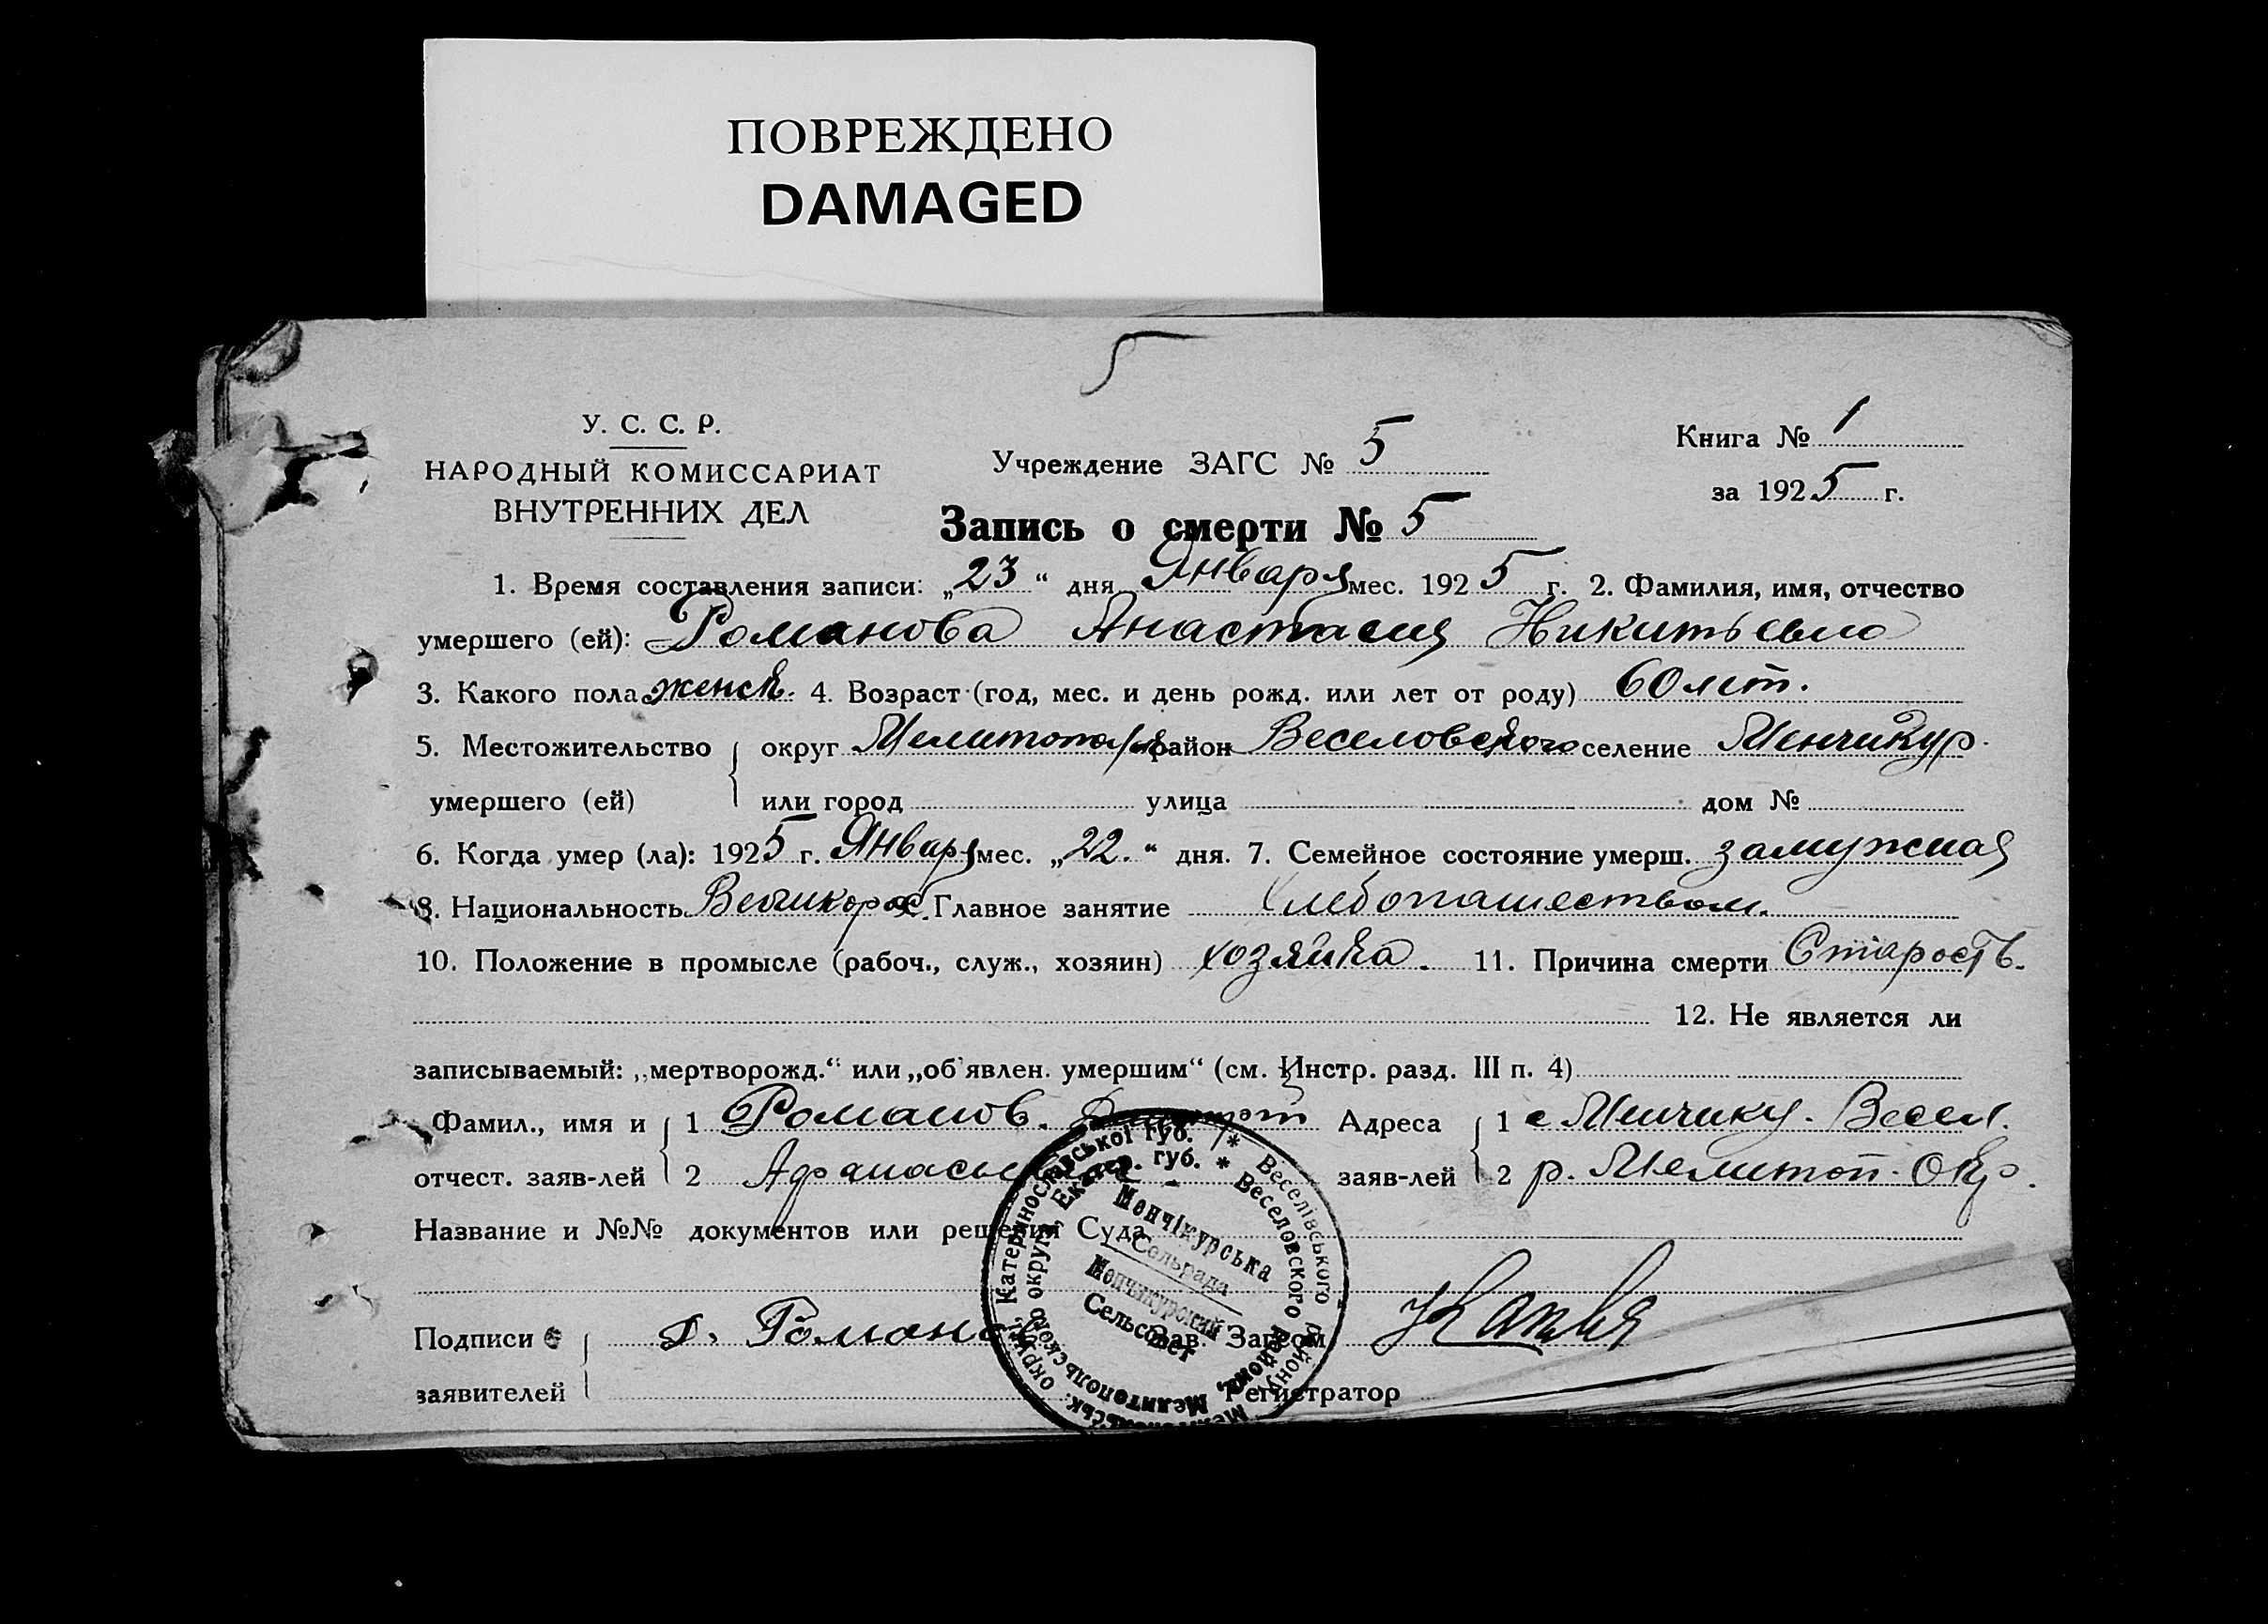 ПОВРЕЖДЕНО
DAMAGED
5
У. С. С. Р.
НАРОДНЫЙ КОМИССАРИАТ
ВНУТРЕННИХ ДЕЛ
Учреждение ЗАГС № 5
Книга № 1
за 1925 г.
Запись о смерти № 5
1. Время составления записи: „23“ дня Января мес. 1925 г. 2. Фамилия, имя, отчество
умершего (ей): Романова Анастасия Никитьевна
3. Какого пола женск. 4. Возраст (год, мес. и день рожд. или лет от роду) 60 лет.
5. Местожительство округ Мелитопол район Веселовского селение Менчикур.
умершего (ей) или город улица дом №
6. Когда умер (ла): 1925 г. Января мес. „22.“ дня. 7. Семейное состояние умерш. замужная
8. Национальность Великорос. Главное занятие Хлебопашеством.
10. Положение в промысле (рабоч., служ., хозяин) хозяйка. 11. Причина смерти Старость.
12. Не является ли
записываемый: „мертворожд.“ или „об'явлен. умершим“ (см. Инстр. разд. III п. 4)
Фамил., имя и 1 Романов. Адреса 1 с Менчику. Весел.
отчест. заяв-лей 2 заяв-лей 2 р. Мелитоп. Окр.
Название и №№ документов или решения Суда
Подписи Романов Зав. Загсом
заявителей Регистратор
Катеринославської губ. * Веселівського району, Мелітопольськ. округи,
Екатер. губ. * Веселовского района, Мелитопольского округа,
Менчікурська
Сельрада
Менчикурский
Сельсовет